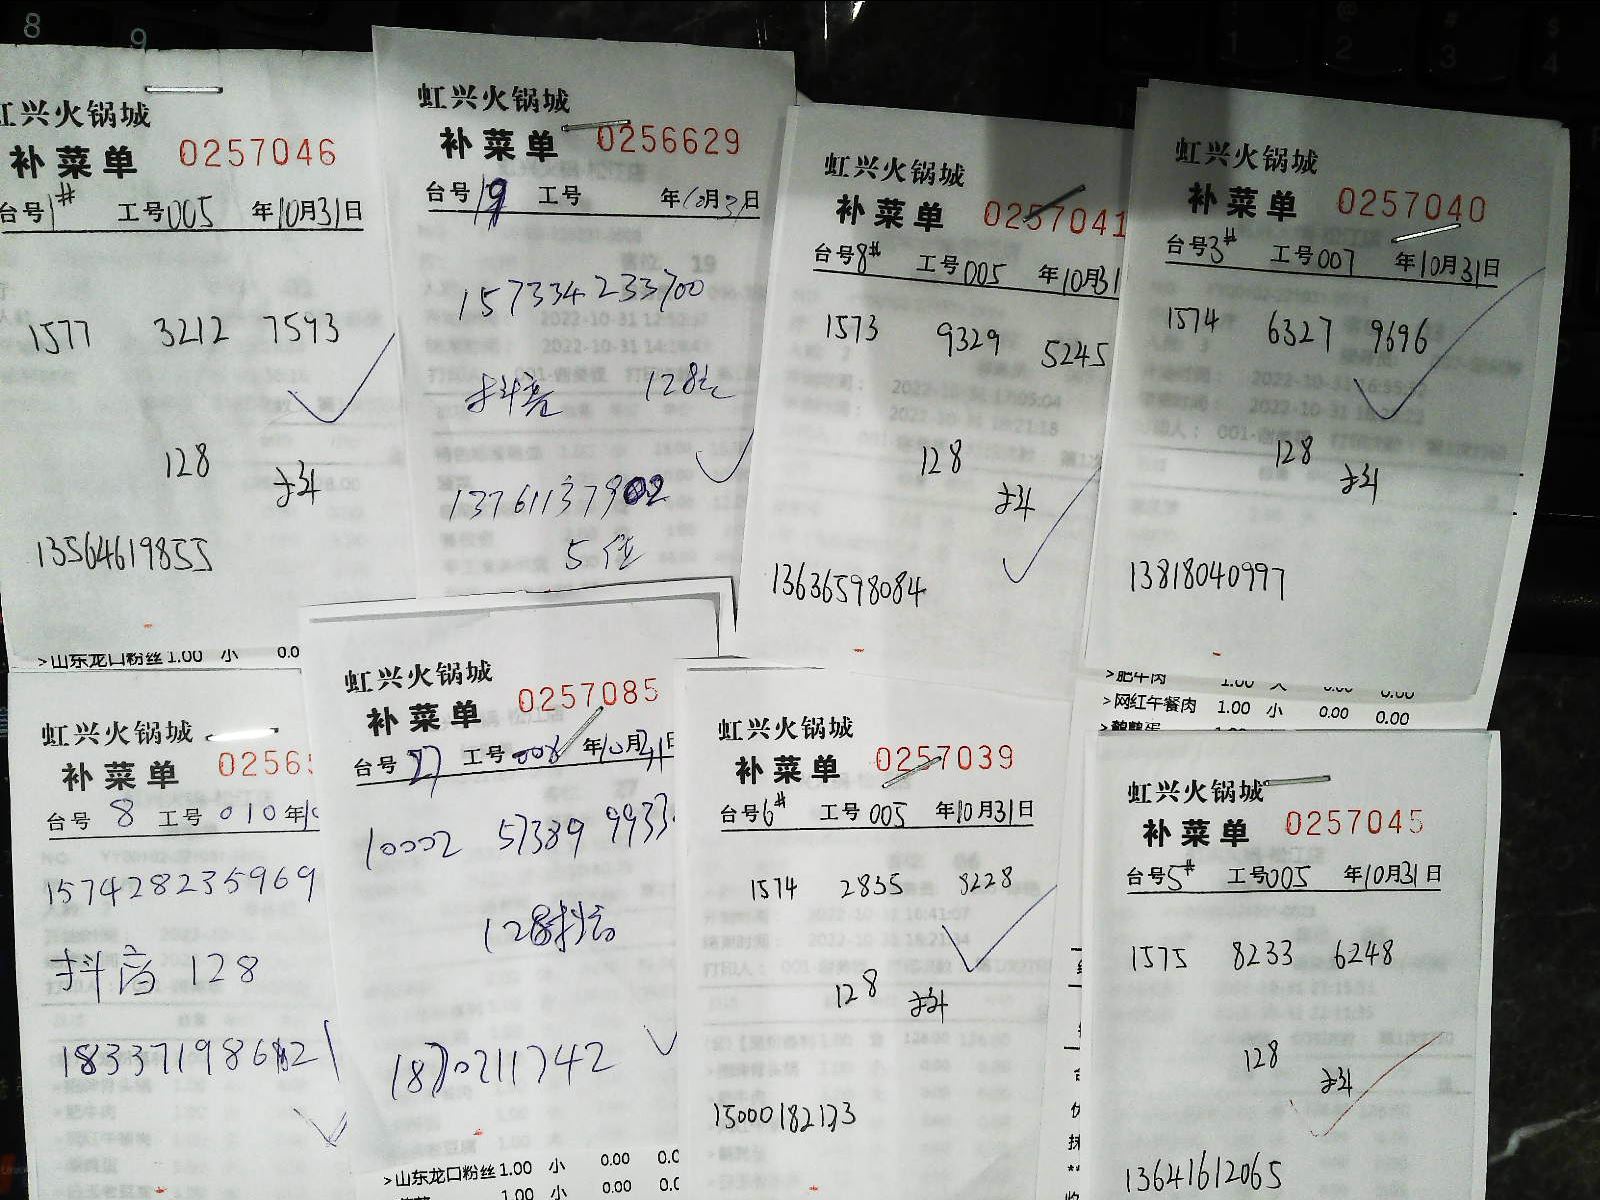 虹兴火锅城
补菜单 0257046
台号1# 工号005 年10月31日
1577 3212 7593
128 抖
13564619855
>山东龙口粉丝1.00 小 0.0
虹兴火锅城
补菜单 0256629
台号19 工号 年10月31日
157334233700
抖音 128元
13761137902
5位
虹兴火锅城
补菜单 0257041
台号8# 工号005 年10月31
1573 9329 5245
128 抖
13636598084
虹兴火锅城
补菜单 0257040
台号3# 工号007 年10月31日
1574 6327 9696
128 抖
13818040997
>肥牛肉 1.00 大 0.00 0.00
>网红午餐肉 1.00 小 0.00 0.00
虹兴火锅城
补菜单 0256
台号 8 工号 010 年10
157428235969
抖音 128
虹兴火锅城
补菜单 0257085
台号27 工号008 年10月31日
10002 57389 9933
128抖音
1870211742
>山东龙口粉丝1.00 小 0.00 0.0
1.00 小 0.00 0.0
虹兴火锅城
补菜单 0257039
台号6# 工号005 年10月31日
1574 2835 8228
128 抖
虹兴火锅城
补菜单 0257045
台号5# 工号005 年10月31日
1575 8233 6248
128 抖
13641612065